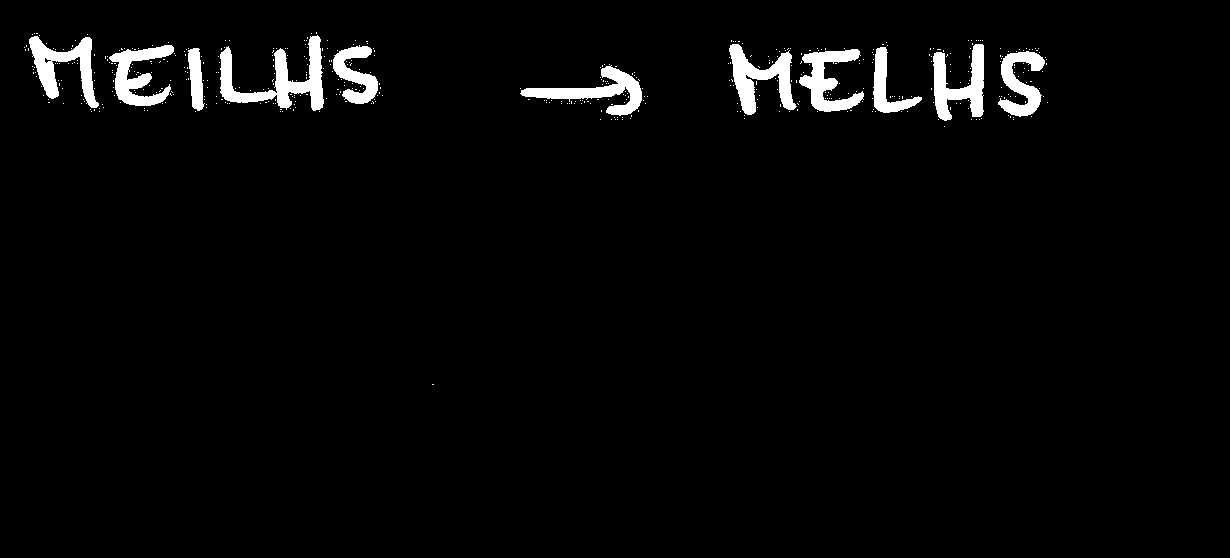 MEILHS → MELHS